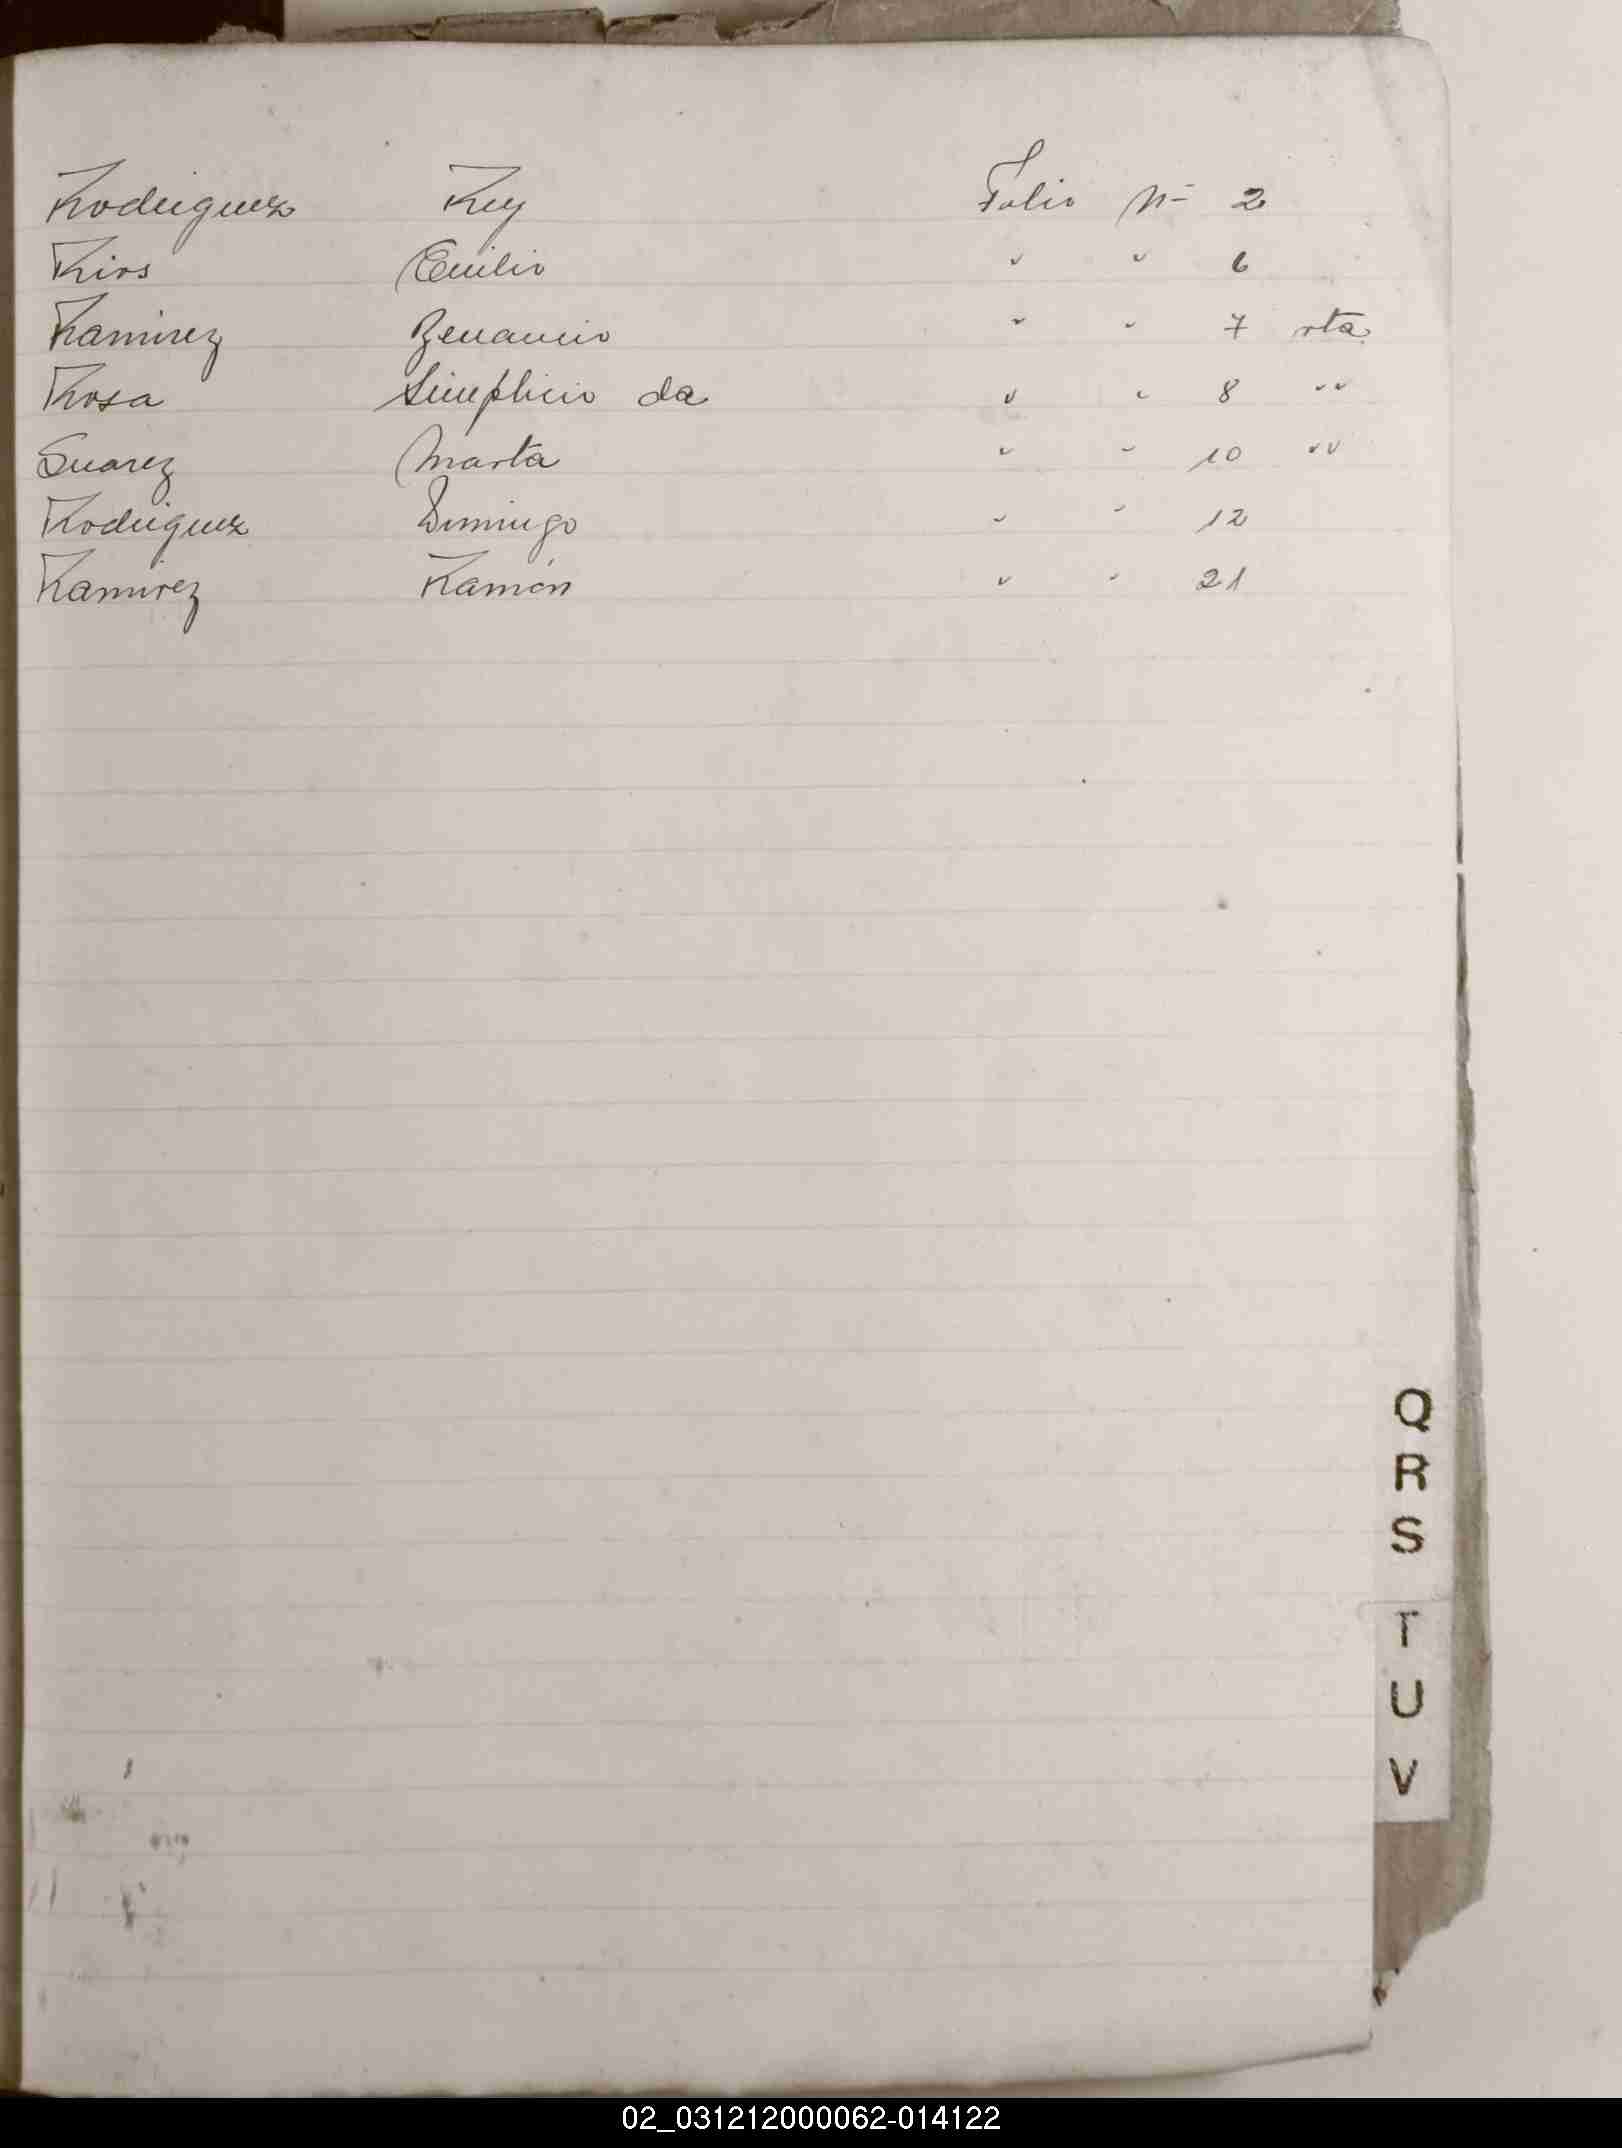 Rodriguez Rey Folio Nº 2
Rios Emilio " " 6
Ramirez Benancio " " 7 vta
Rosa Simplicio da " " 8 " "
Suarez Marta " " 10 " "
Rodriguez Domingo " " 12
Ramirez Ramón " " 21
Q
R
S
T
U
V
02_031212000062-014122